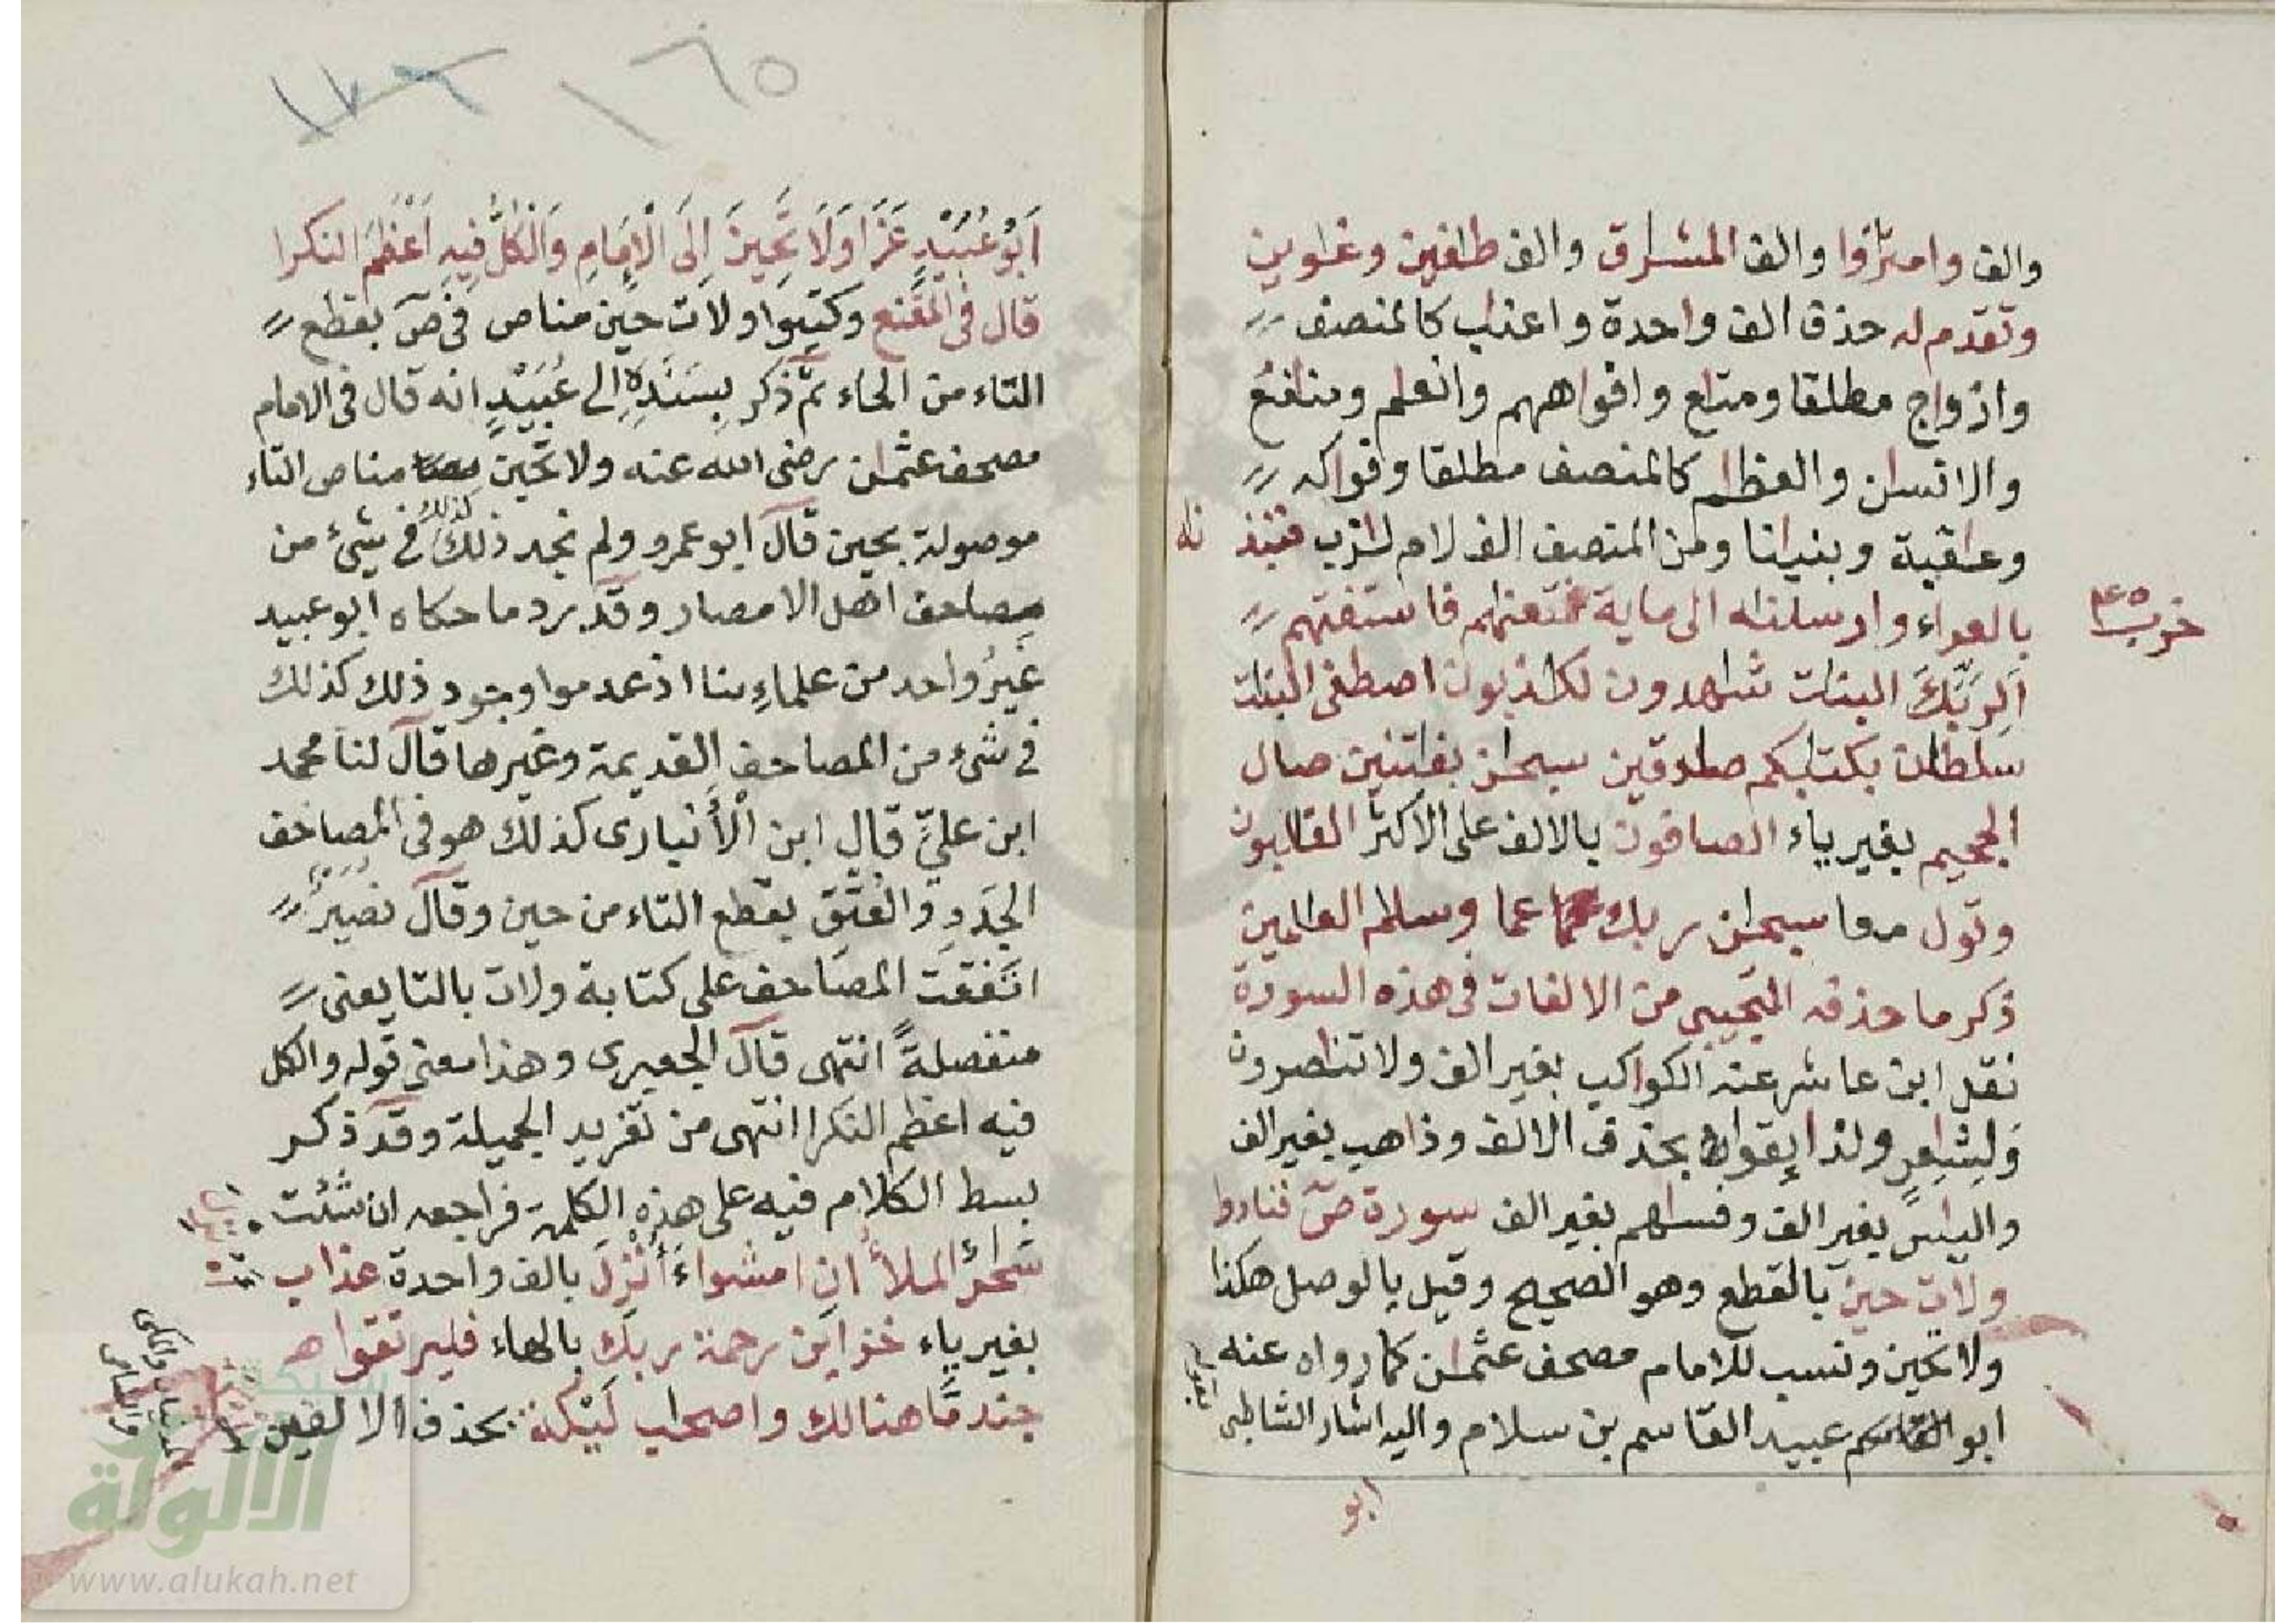 والف وامتزوا والف المشرق والف طغين وغوين
وتقدم له حذف الف واحدة واعناب كالمنصف
وازواج مطلقا ومتاع وافواههم وانعم ومنافع
والانسان والعظم كالمنصف مطلقا وفواكه
وعقبة وبنيانا ومن المنصف الف لام لازب فنبذ نه
حزب ٤٥
بالعراء وارسلنه الى ماية فمتعنهم فاستفتهم
الربك البنات شهدون لكذبون اصطفى البنات
سلطان بكتبكم صدقين سبحن بفتنين صال
الجحيم بغير ياء الصافون بالالف على الاكثر الغالبون
وتول معا سبحن ربك عما وسلم العلمين
ذكر ما حذفه التجيبي من الالفات في هذه السورة
نقل ابن عاشر عنه الكواكب بغير الف ولا تناصرون
ولشاعر ولذايقوا بحذف الالف وذاهب بغير الف
والياس بغير الف وفساهم بغير الف سورة ص فنادوا
ولات حين بالقطع وهو الصحيح وقيل بالوصل هكذا
ولا تحين ونسب للامام مصحف عثمن كما رواه عنه
ابو القاسم عبيد القاسم بن سلام واليه اشار الشاطبي بقوله
ابو
١٦٥
١٧٦
اَبُو عُبَيْدٍ عَزَا وَلَا تَحِينَ اِلَى الْاِمَامِ وَالْكُلُّ فِيهِ اَعْظَمَ النكرا
قال في المقنع وكتبوا ولات حين مناص في ص بقطع
التاء من الحاء ثم ذكر بسنده الى عبيد انه قال في الامام
مصحف عثمن رضي الله عنه ولا تحين مناص التاء
موصولة بحين قال ابو عمرو ولم نجد ذلك كذلك في شيء من
مصاحف اهل الامصار وقد رد ما حكاه ابو عبيد
غير واحد من علماءنا اذ عدموا وجود ذلك كذلك
في شيء من المصاحف القديمة وغيرها قال لنا محمد
ابن علي قال ابن الأنباري كذلك هو في المصاحف
الجدد والعتق بقطع التاء من حين وقال نصير
اتفقت المصاحف على كتابة ولات بالتا يعني
منفصلة انتهى قال الجعبري وهذا معنى قوله والكل
فيه اعظم النكرا انتهى من تفريد الجميلة وقد ذكر
بسط الكلام فيه على هذه الكلمة فراجعه ان شئت
سحر الملأ ان امشوا ءأنزل بالف واحدة عذاب
بغير ياء خزاين رحمة ربك بالهاء فليرتقوا
جند ما هنالك واصحب لئيكة بحذف الالفين
المدنيان والمكي
والشامي
شبكة
الألوكة
www.alukah.net